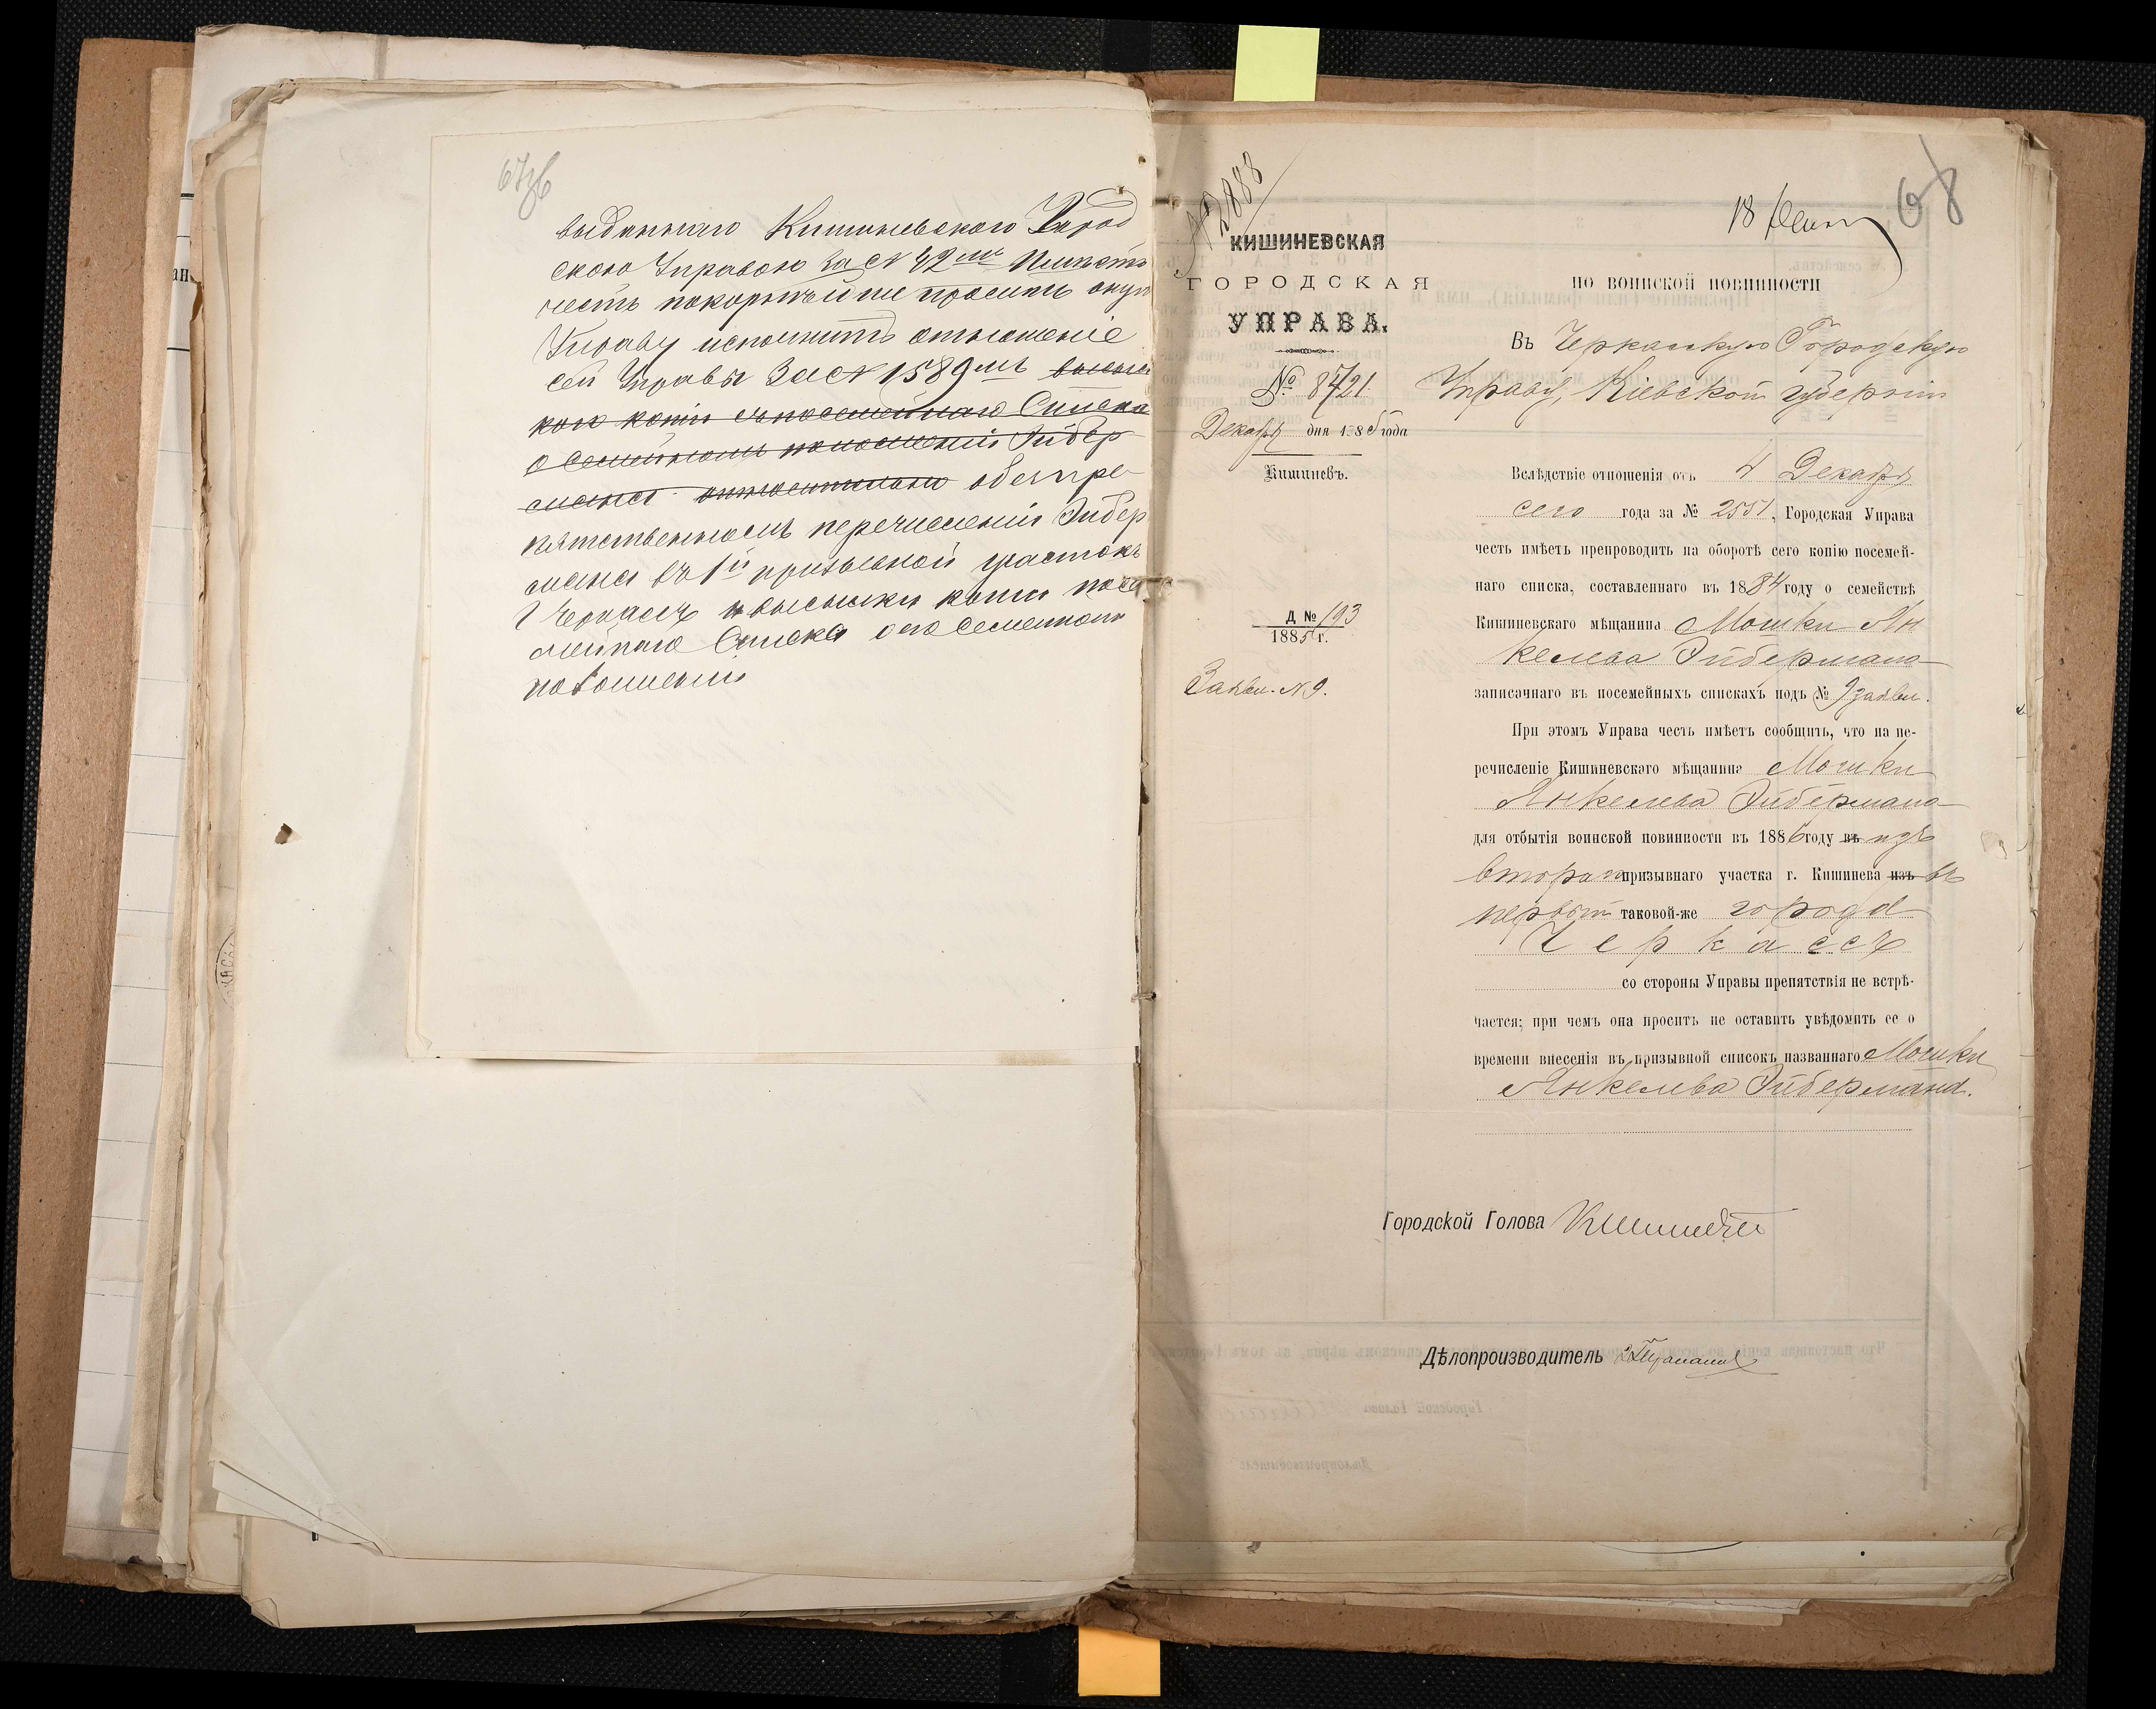 67об
выданнаго Кишиневскою Город
скою Управою за № 42мъ Имѣетъ
честь покорнѣйше просить оную
Управу исполнить отношеніе
сей Управы за № 1589мъ высыл
кою копіи съ посемейнаго Списка
о Семейномъ положеніи Эйбер
мана относительно безпре-
пятственномъ перечисленіи Эйбер
мана въ 1й призывной участокъ
г Черкасъ и высылки копіи посе
мейнаго Списка о его Семейномъ
положеніи
№ 2888
18
68
КИШИНЕВСКАЯ
ГОРОДСКАЯ
УПРАВА.
№ 8721
Декабря дня 1885 года
Кишиневъ.
Д № 193
1885 г.
Заявл. № 9.
по воинской повинности
Въ Черкаскую Городскую
Управу, Кіевской губерніи
Вслѣдствіе отношенія отъ 4 Декабря
сего года за № 2551, Городская Управа
честь имѣетъ препроводить на оборотѣ сего копію посемей-
наго списка, составленнаго въ 1884 году о семействѣ
Кишиневскаго мѣщанина Мошки Ян
келева Эйбермана
записачнаго въ посемейныхъ спискахъ подъ № 9 заявл.
При этомъ Управа честь имѣетъ сообщить, что на пе-
речисленіе Кишиневскаго мѣщанина Мошки
Янкелева Эйбермана
для отбытія воинской повинности въ 1886 году въ изъ
втораго призывнаго участка г. Кишинева изъ въ
первый таковой-же города
Черкассъ
со стороны Управы препятствія не встрѣ-
чается; при чемъ она проситъ не оставить увѣдомить ее о
времени внесенія въ призывной списокъ названнаго Мошки
Янкелева Эйбермана.
Городской Голова
Дѣлопроизводитель